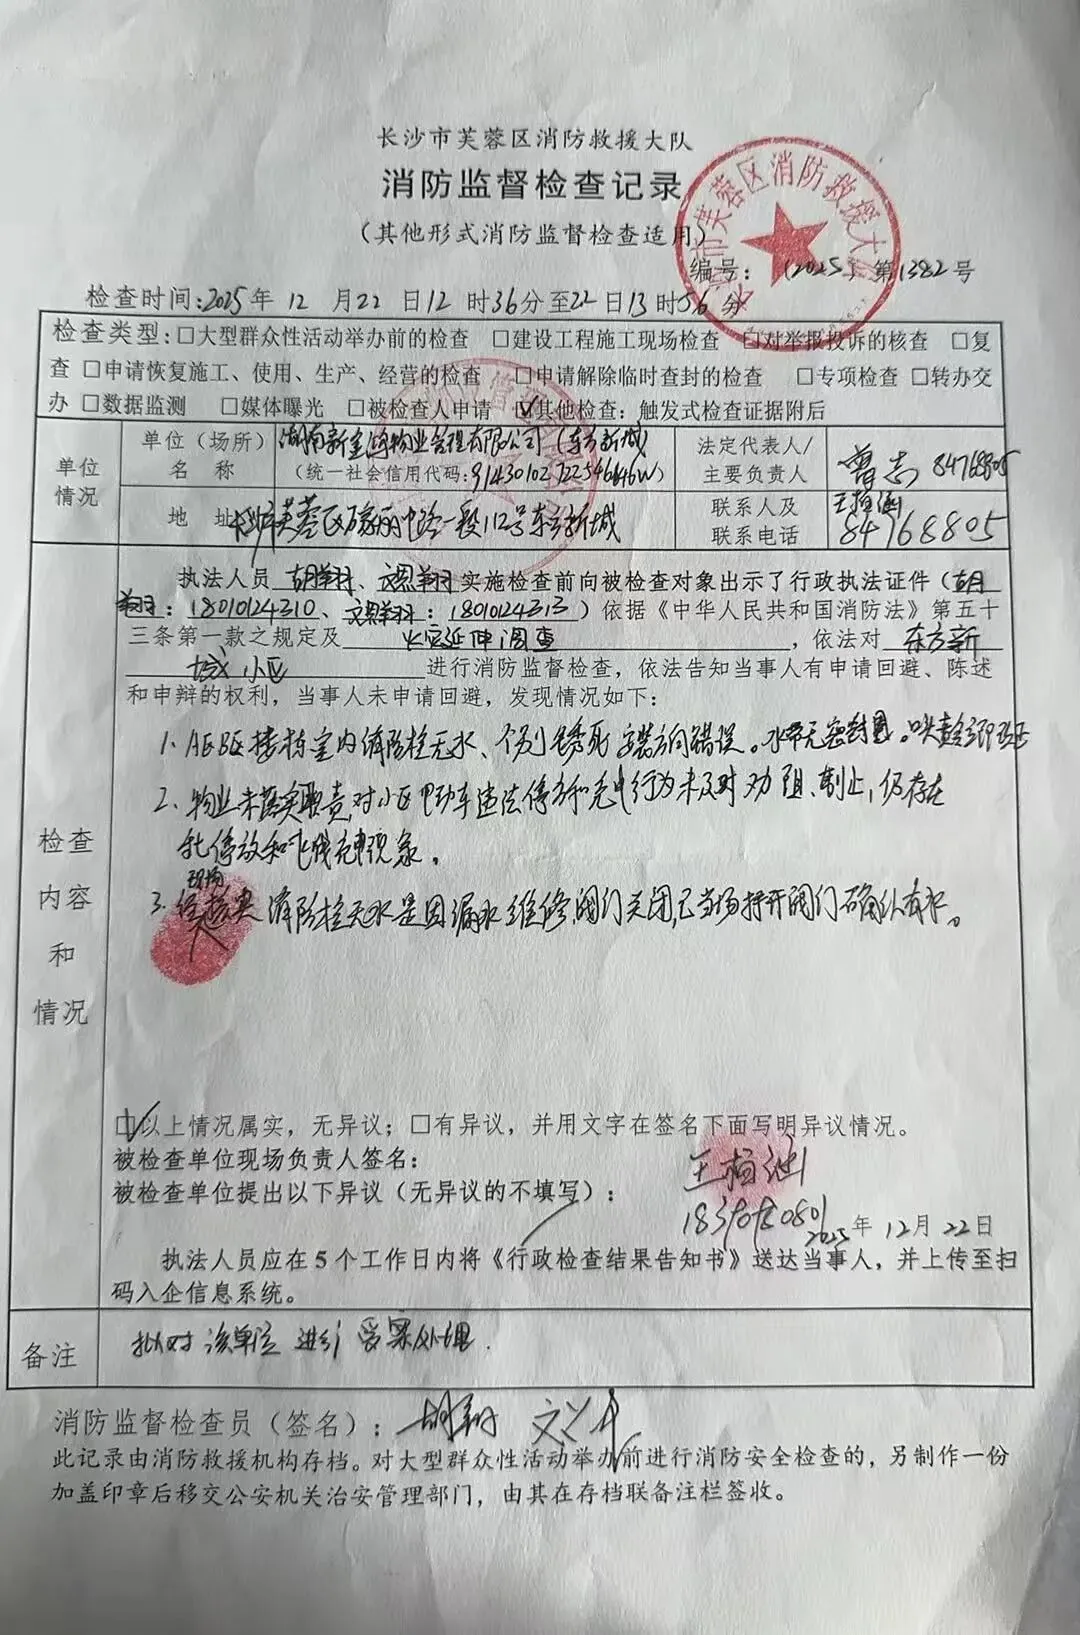 长沙市芙蓉区消防救援大队
消防监督检查记录
（其他形式消防监督检查适用）
编号：〔2025〕第1382号
检查时间：2025年12月22日12时36分至22日13时56分
检查类型：□大型群众性活动举办前的检查 □建设工程施工现场检查 □对举报投诉的核查 □复
查 □申请恢复施工、使用、生产、经营的检查 □申请解除临时查封的检查 □专项检查 □转办交
办 □数据监测 □媒体曝光 □被检查人申请 ☑其他检查：触发式检查证据附后
单位情况
单位（场所）名称
湖南新 物业管理有限公司（东方新城）
（统一社会信用代码：91430102722546446W）
法定代表人/主要负责人
曾志 84768805
地 址
长沙市芙蓉区万家丽中路一段112号东方新城
联系人及联系电话
王 涵
84768805
检查内容和情况
执法人员 胡翔、文思翔 实施检查前向被检查对象出示了行政执法证件（胡
翔：18010124310、文思翔：18010124313）依据《中华人民共和国消防法》第五十
三条第一款之规定及 火灾延伸调查 ，依法对 东方新
城小区 进行消防监督检查，依法告知当事人有申请回避、陈述
和申辩的权利，当事人未申请回避，发现情况如下：
1、A区B区楼栋室内消防栓无水、个别锈死 安装方向错误。水带无密封圈。
2、物业未落实职责，对小区电动车违法停放和充电行为未及时劝阻、制止，仍存在
乱停放和飞线充电现象。
现场
3、经核实 消防栓无水是因漏水维修，阀门关闭，已当场打开阀门确认有水。
☑以上情况属实，无异议；□有异议，并用文字在签名下面写明异议情况。
被检查单位现场负责人签名：
王 涵
被检查单位提出以下异议（无异议的不填写）：
2025年12月22日
执法人员应在5个工作日内将《行政检查结果告知书》送达当事人，并上传至扫
码入企信息系统。
备注
拟对该单位进行受案处理.
消防监督检查员（签名）：胡翔
此记录由消防救援机构存档。对大型群众性活动举办前进行消防安全检查的，另制作一份
加盖印章后移交公安机关治安管理部门，由其在存档联备注栏签收。